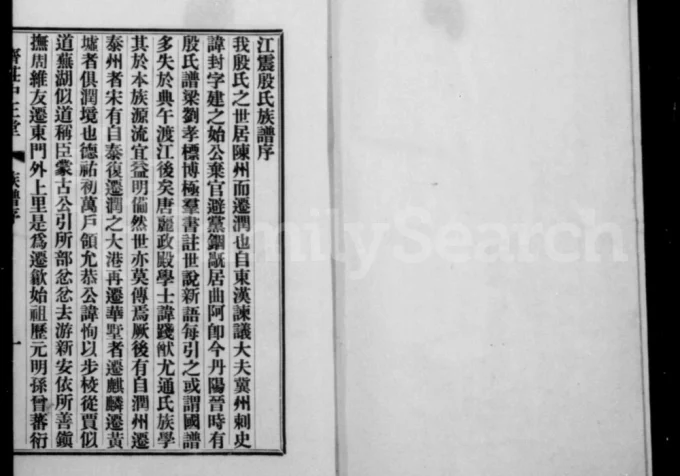 江震殷氏族譜序
我殷氏之世居陳州而遷潤也自東漢諫議大夫冀州刺史
諱封字建之始公棄官避黨錮厭居曲阿卽今丹陽晉時有
殷氏譜梁劉孝標博極羣書註世說新語每引之或謂國譜
多失於典午渡江後矣唐麗政殿學士諱踐猷尤通氏族學
其於本族源流宜益明備然世亦莫傳焉厥後有自潤州遷
泰州者宋有自泰復遷潤之大港再遷華墅者遷麒麟遷黃
墟者俱潤境也德祐初萬戶領尤恭公諱恂以步校從賈似
道蕪湖似道稱臣蒙古公引所部忿忿去游新安依所善鎭
撫周維友遷東門外上里是爲遷歙始祖歷元明孫曾蕃衍
族譜序
一
FamilySearch